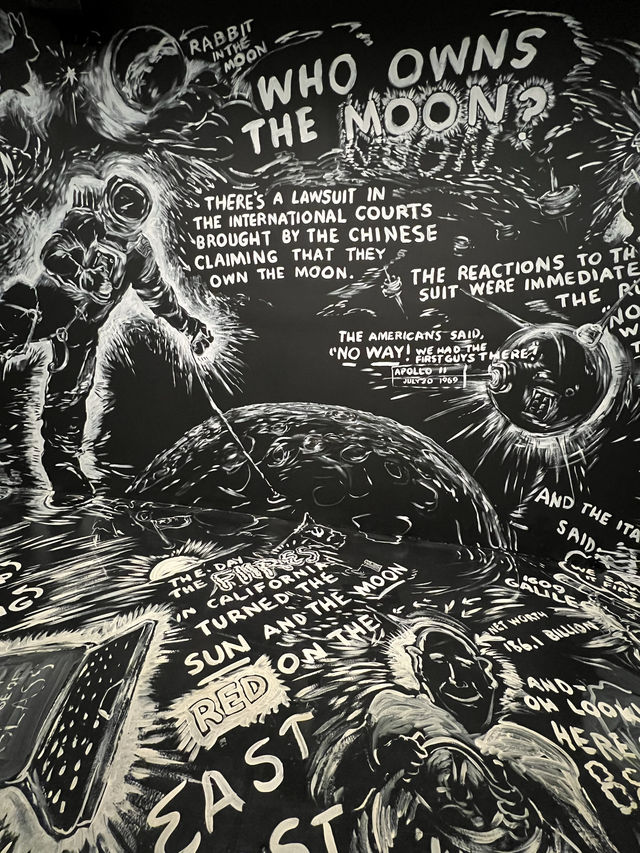 RABBIT
IN THE
MOON
WHO OWNS
THE MOON?
THERE'S A LAWSUIT IN
THE INTERNATIONAL COURTS
BROUGHT BY THE CHINESE
CLAIMING THAT THEY
OWN THE MOON.
THE REACTIONS TO TH
SUIT WERE IMMEDIATE
THE RU
NO
THE AMERICANS SAID,
"NO WAY! WE HAD THE
FIRST GUYS THERE!"
APOLLO 11
JULY 20 1969
AND THE ITA
SAID,
WE
FIRS
1609
GALILE
NET WORTH
136.1 BILLION
AND-
OH LOOK
HERE
THE DAY
THE FIRES
IN CALIFORNIA
TURNED THE
SUN AND THE MOON
RED ON THE
EAST
ST